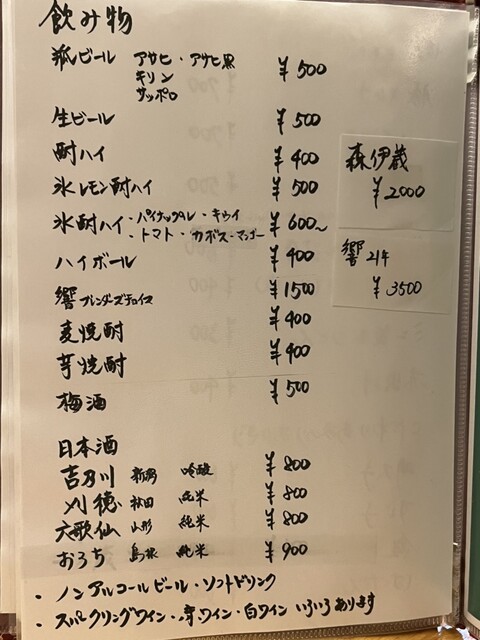 飲み物
瓶ビール アサヒ・アサヒ黒 ¥500
キリン
サッポロ
生ビール ¥500
酎ハイ ¥400
氷レモン酎ハイ ¥500
氷酎ハイ・パイナップル・キウイ ¥600~
・トマト・カボス・マンゴー
ハイボール ¥400
響 ブレンダーズチョイス ¥1500
麦焼酎 ¥400
芋焼酎 ¥400
梅酒 ¥500
日本酒
吉乃川 新潟 吟醸 ¥800
刈穂 秋田 純米 ¥800
六歌仙 山形 純米 ¥800
おろち 島根 純米 ¥900
・ノンアルコールビール・ソフトドリンク
・スパークリングワイン・赤ワイン・白ワイン いろいろあります
森伊蔵
¥2000
響 21年
¥3500